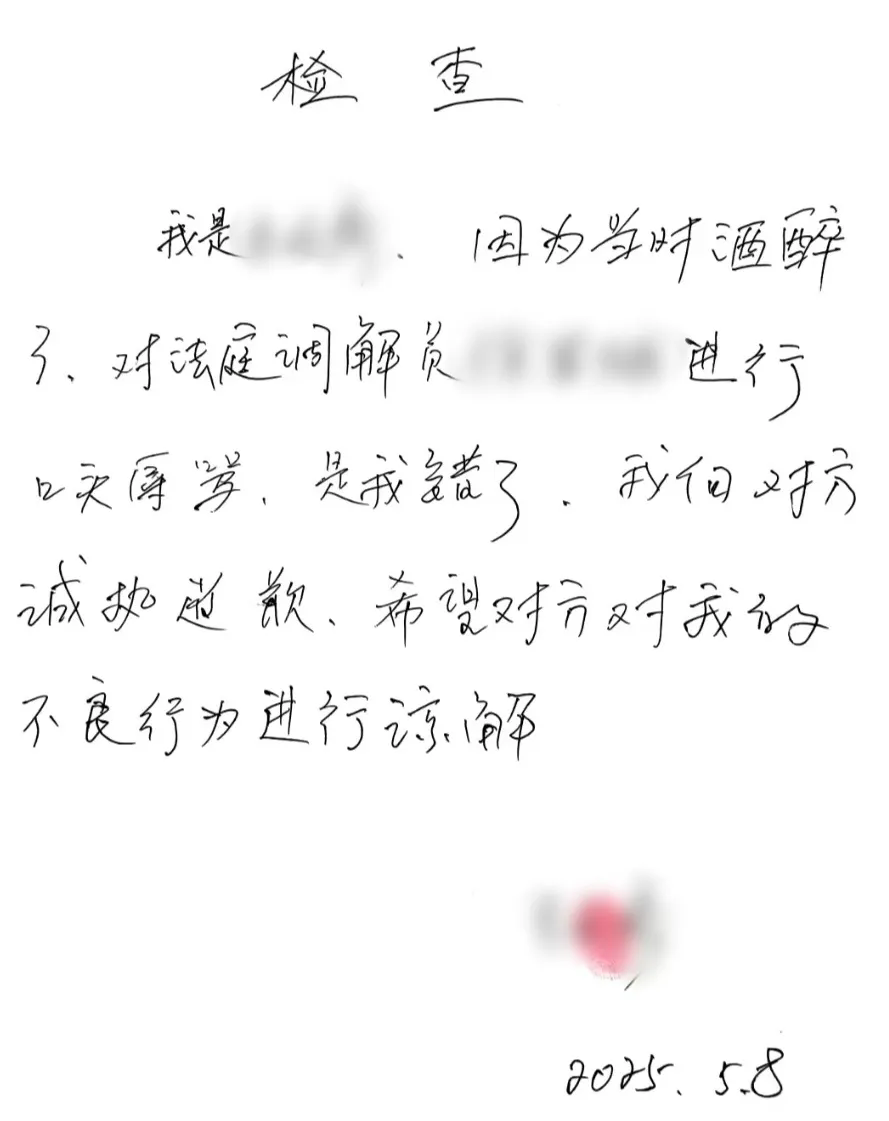 检查
我是 . 因为当时酒醉
了、对法庭调解员 进行
口头辱骂、是我错了. 我向对方
诚挚道歉、希望对方对我的
不良行为进行谅解
2025.5.8